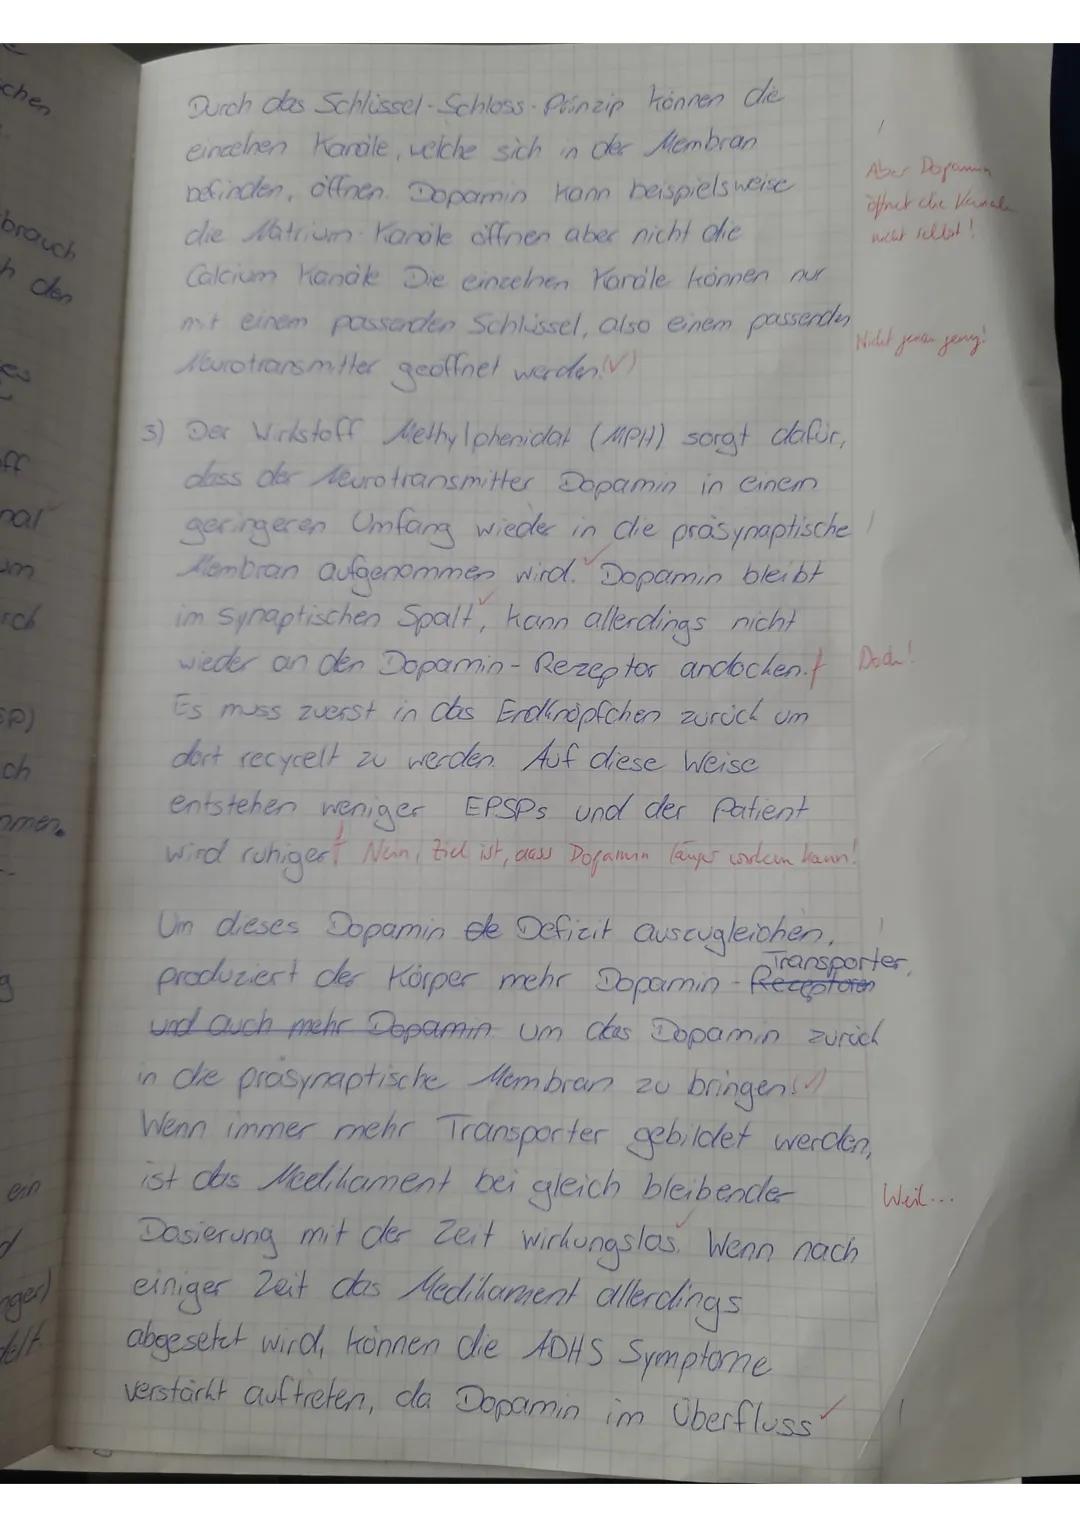 Durch das Schlüssel-Schloss-Prinzip können die
einzelnen Kanäle, welche sich in der Membran
befinden, öffnen. Dopamin kann beispielsweise
die Natrium-Kanäle öffnen aber nicht die
Calcium Kanäle Die einzelnen Kanäle können nur
mit einem passenden Schlüssel, also einem passenden
Neurotransmitter geöffnet werden. (✓)
Aber Dopamin
öffnet die Kanäle
nicht selbst!
Nicht genau genug!
3) Der Wirkstoff Methylphenidat (MPH) sorgt dafür,
dass der Neurotransmitter Dopamin in einem
geringeren Umfang wieder in die präsynaptische
Membran aufgenommen wird. Dopamin bleibt
im synaptischen Spalt, kann allerdings nicht
wieder an den Dopamin-Rezeptor andocken. f
Doch!
Es muss zuerst in das Endknöpfchen zurück um
dort recycelt zu werden. Auf diese Weise
entstehen weniger EPSPs und der Patient
wird ruhiger f Nein, Ziel ist, dass Dopamin länger wirken kann!
Um dieses Dopamin de Defizit auszugleichen,
produziert der Körper mehr Dopamin-Rezeptoren Transporter,
und auch mehr Dopamin um das Dopamin zurück
in die präsynaptische Membran zu bringen. (✓)
Wenn immer mehr Transporter gebildet werden,
ist das Medikament bei gleich bleibender
Weil...
Dosierung mit der Zeit wirkungslos. Wenn nach
einiger Zeit das Medikament allerdings
abgesetzt wird, können die ADHS Symptome
verstärkt auftreten, da Dopamin im Überfluss